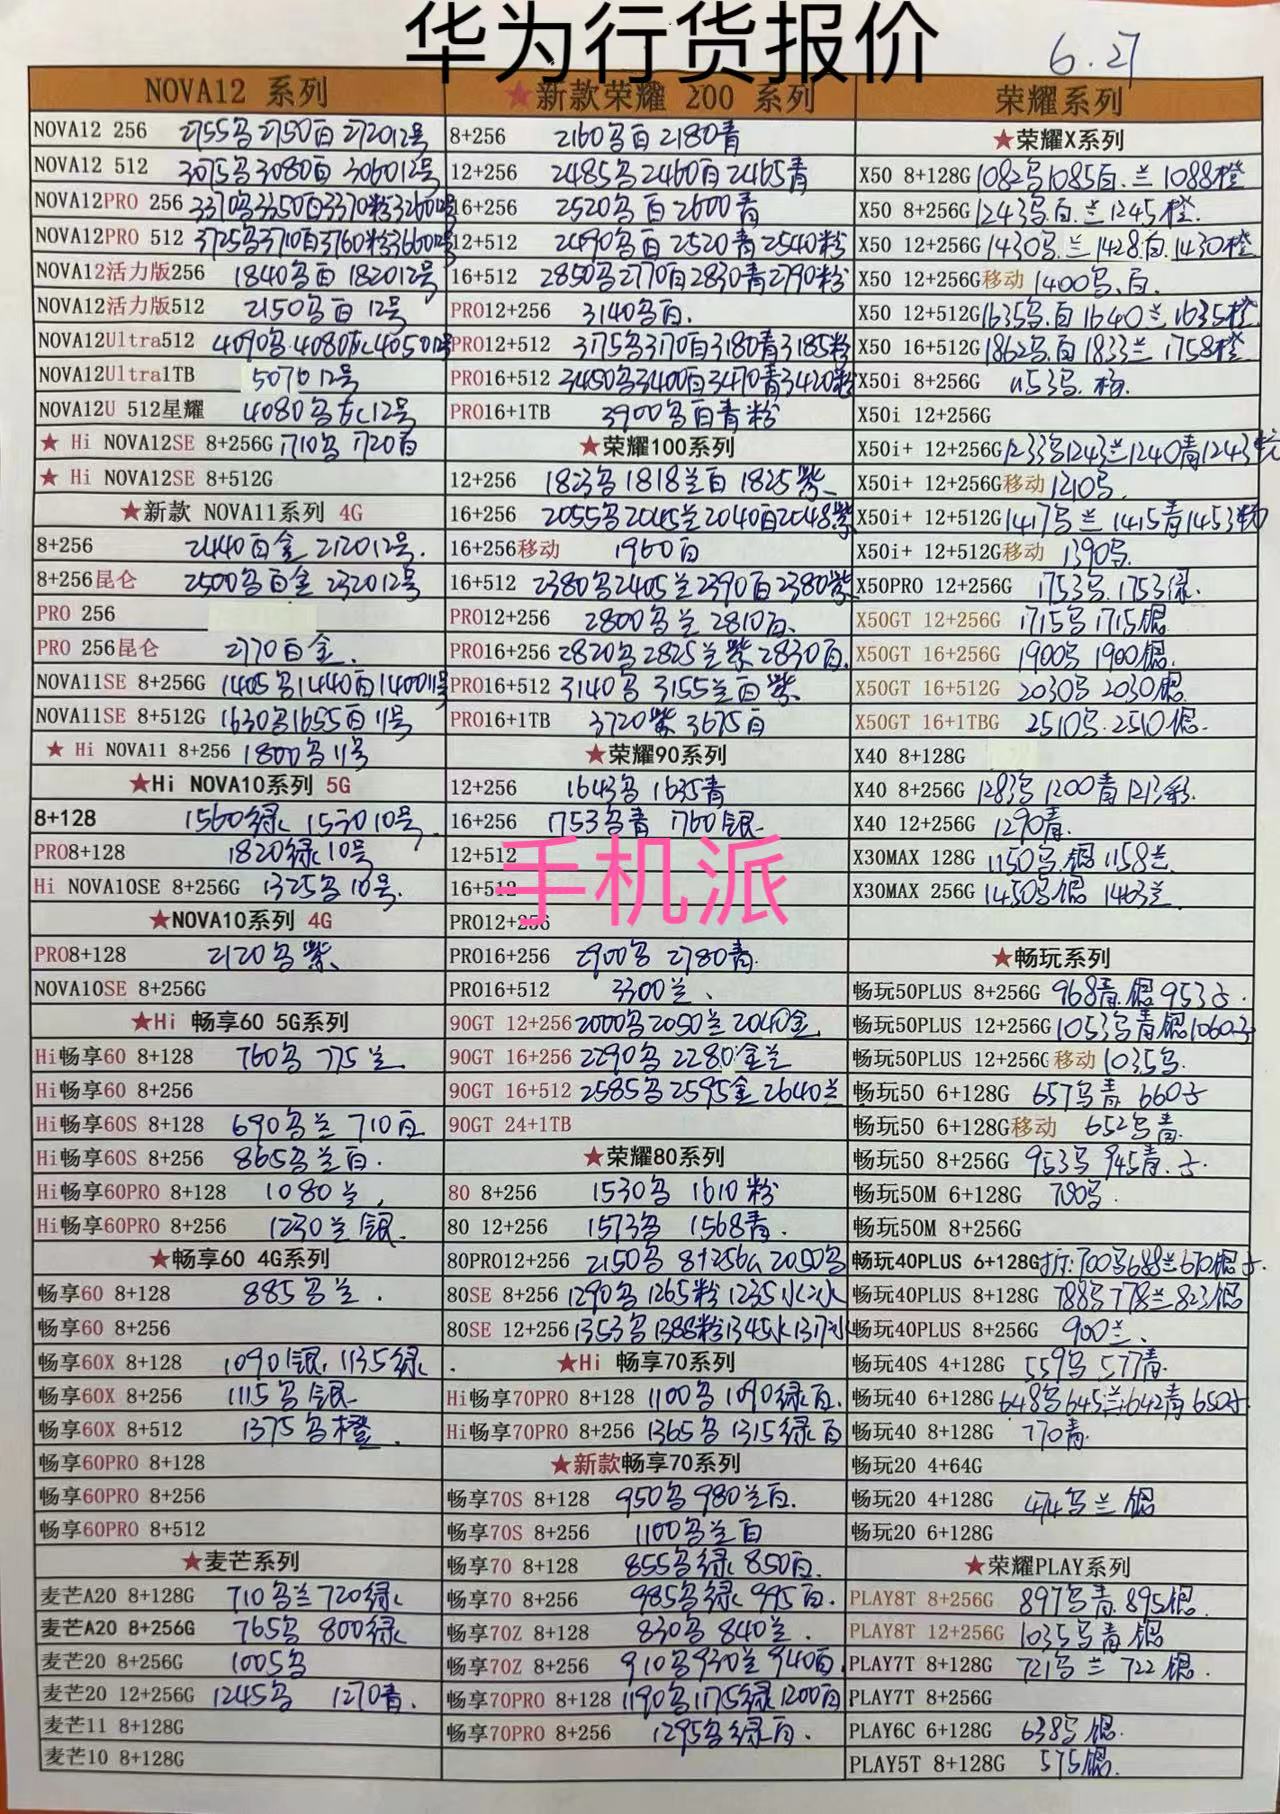 华为行货报价
6.27
NOVA12 系列
NOVA12 256 2755乌2750白272012号
NOVA12 512 3075乌3080白306012号
NOVA12PRO 256 3370乌3350白3370粉3260
NOVA12PRO 512 3725乌3710白3760粉3660
NOVA12活力版256 1840乌白182012号
NOVA12活力版512 2150乌白12号
NOVA12Ultra512 4090乌.4080灰4050
NOVA12Ultra1TB 507012号
NOVA12U 512星耀 4080乌灰12号
★ Hi NOVA12SE 8+256G 710乌 720白
★ Hi NOVA12SE 8+512G
★新款 NOVA11系列 4G
8+256 2440白金 212012号.
8+256昆仑 2500乌白金 232012号
PRO 256
PRO 256昆仑 2770白金.
NOVA11SE 8+256G 1405乌1440白140011号
NOVA11SE 8+512G 1630乌1655白11号
★ Hi NOVA11 8+256 1800乌11号
★Hi NOVA10系列 5G
8+128 1560绿 10号.
PRO8+128 1820绿10号
Hi NOVA10SE 8+256G 1325乌10号.
★NOVA10系列 4G
PRO8+128 2120乌紫
NOVA10SE 8+256G
★Hi 畅享60 5G系列
Hi畅享60 8+128 760乌 775兰
Hi畅享60 8+256
Hi畅享60S 8+128 690乌兰 710白
Hi畅享60S 8+256 865乌兰白.
Hi畅享60PRO 8+128 1080兰
Hi畅享60PRO 8+256 1230兰银.
★畅享60 4G系列
畅享60 8+128 885乌兰.
畅享60 8+256
畅享60X 8+128 1090银, 1135绿
畅享60X 8+256 1115乌银
畅享60X 8+512 1375乌橙
畅享60PRO 8+128
畅享60PRO 8+256
畅享60PRO 8+512
★麦芒系列
麦芒A20 8+128G 710乌兰720绿
麦芒A20 8+256G 765乌 800绿
麦芒20 8+256G 1005乌
麦芒20 12+256G 1245乌 1270青.
麦芒11 8+128G
麦芒10 8+128G
★新款荣耀 200 系列
8+256 2160乌白2180青
12+256 2485乌2460白2465青
16+256 2520乌白2600青
12+512 2490乌白2520青2540粉
16+512 2850乌2770白2830青2790粉
PRO12+256 3140乌白.
PRO12+512 3175乌3170白3180青3185粉
PRO16+512 3450乌3400白3470青3420粉
PRO16+1TB 3900乌白青粉
★荣耀100系列
12+256 1823乌1818兰白1825紫
16+256 2055乌2045兰2040白2048紫
16+256移动 1960白
16+512 2380乌2405兰2390白2380紫
PRO12+256 2800乌兰2810白.
PRO16+256 2820乌2825兰紫2830白.
PRO16+512 3140乌 3155兰白紫
PRO16+1TB 3720紫 3675白
★荣耀90系列
12+256 1643乌1635青
16+256 1753乌青 1760银
手机派
12+512
16+512
PRO12+256
PRO16+256 2900乌 2780青.
PRO16+512 3300兰、
90GT 12+256 2000乌2050兰2040金
90GT 16+256 2290乌2280金兰
90GT 16+512 2585乌2595金2640兰
90GT 24+1TB
★荣耀80系列
80 8+256 1530乌 1610粉
80 12+256 1573乌 1568青.
80PRO12+256 2150乌 8+256G 2050乌
80SE 8+256 1290乌1265粉1235冰
80SE 12+256 1353乌1388粉1345
★Hi 畅享70系列
Hi畅享70PRO 8+128 1100乌1090绿白.
Hi畅享70PRO 8+256 1365乌1315绿白
★新款畅享70系列
畅享70S 8+128 950乌980兰白.
畅享70S 8+256 1100乌兰白
畅享70 8+128 855乌绿850白.
畅享70 8+256 985乌绿995白.
畅享70Z 8+128 830乌840兰.
畅享70Z 8+256 910乌930兰940白
畅享70PRO 8+128 1190乌1175绿1200白
畅享70PRO 8+256 1295乌绿白.
荣耀系列
★荣耀X系列
X50 8+128G 1082乌1085白.兰1088橙
X50 8+256G 1243乌.白.兰1245橙.
X50 12+256G 1430乌.兰1428白.1430橙
X50 12+256G移动 1400乌.白.
X50 12+512G 1635乌.白1640兰1635橙
X50 16+512G 1862乌.白1833兰1758橙
X50i 8+256G 1153乌.
X50i 12+256G
X50i+ 12+256G 1233乌1243兰1240青1243
X50i+ 12+256G移动 1210乌.
X50i+ 12+512G 1417乌兰1415青1453
X50i+ 12+512G移动 1390乌
X50PRO 12+256G 1753乌.1753绿.
X50GT 12+256G 1715乌1715银
X50GT 16+256G 1900乌1900银.
X50GT 16+512G 2030乌2030银
X50GT 16+1TBG 2510乌.2510银.
X40 8+128G
X40 8+256G 1283乌1200青1213彩.
X40 12+256G 1290青.
X30MAX 128G 1150乌.银1158兰
X30MAX 256G 1450乌银 1463兰
★畅玩系列
畅玩50PLUS 8+256G 968青.银953
畅玩50PLUS 12+256G 1053乌青银1060
畅玩50PLUS 12+256G移动 1035乌
畅玩50 6+128G 657乌青 660
畅玩50 6+128G移动 652乌青.
畅玩50 8+256G 953乌 945青.
畅玩50M 6+128G 780乌.
畅玩50M 8+256G
畅玩40PLUS 6+128G 700乌688兰670银
畅玩40PLUS 8+128G 788乌778兰823银
畅玩40PLUS 8+256G 900兰、
畅玩40S 4+128G 559乌577青.
畅玩40 6+128G 648乌645兰642青650
畅玩40 8+128G 770青
畅玩20 4+64G
畅玩20 4+128G 474乌兰银
畅玩20 6+128G
★荣耀PLAY系列
PLAY8T 8+256G 897乌青895银.
PLAY8T 12+256G 1035乌青银
PLAY7T 8+128G 721乌兰722银.
PLAY7T 8+256G
PLAY6C 6+128G 638乌银.
PLAY5T 8+128G 575银.